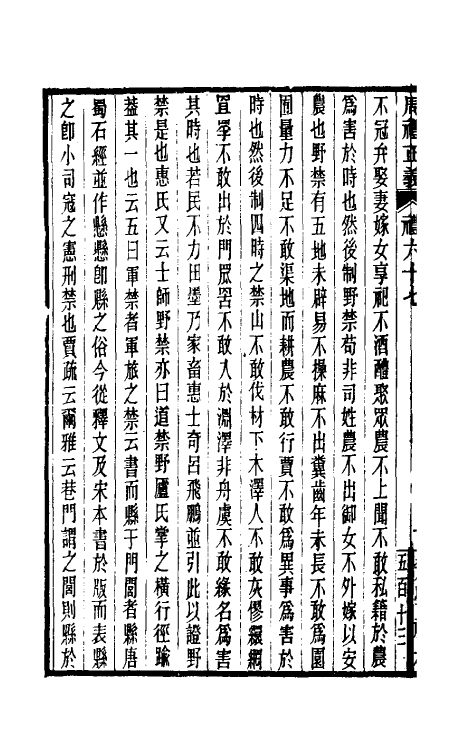 周禮正義 禮六十七
不冠弁娶妻嫁女享祀不酒醴聚眾農不上聞不敢私籍於農
為害於時也然後制野禁苟非同姓農不出御女不外嫁以安
農也野禁有五地未辟易不操麻不出糞齒年未長不敢為園
囿量力不足不敢渠地而耕農不敢行賈不敢為異事為害於
時也然後制四時之禁山不敢伐材下木澤人不敢灰僇繯網
罝罦不敢出於門罛罟不敢入於淵澤非舟虞不敢緣名為害
其時也若民不力田墨乃家畜惠士奇呂飛鵬並引此以證野
禁是也惠氏又云士師野禁亦曰道禁野廬氏掌之橫行徑踰
葢其一也云五曰軍禁者軍旅之禁云書而縣于門閭者縣唐
蜀石經並作懸懸卽縣之俗今從釋文及宋本書於版而表縣
之卽小司寇之憲刑禁也賈疏云爾雅云巷門謂之閭則縣於